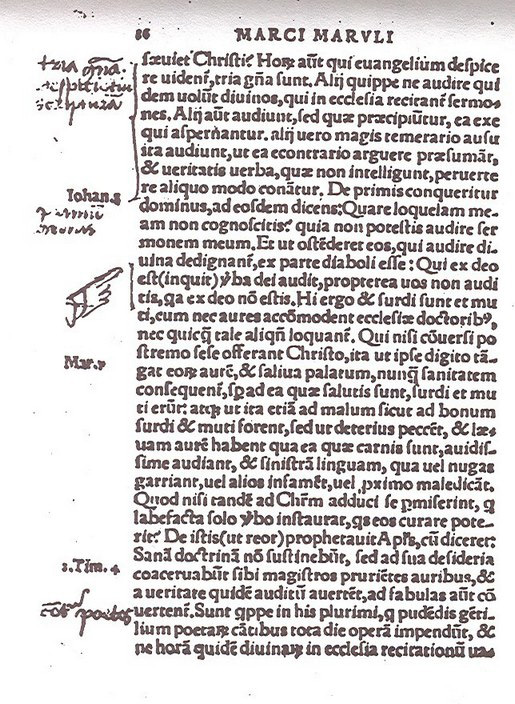 86 MARCI MARVLI
sæuiet Christi? Horꝝ aũt qui euangelium despice
re uident᷑, tria gña sunt. Alij quippe ne audire qui
dem uolũt diuinos, qui in ecclesia recitant᷑ sermo-
nes. Alij aũt audiunt, sed quæ præcipiũtur, ea exe
qui aspernantur. alij uero magis temerario ausu
ita audiunt, ut ea econtrario arguere præsumãt,
& ueritatis uerba, quæ non intelligunt, peruerte
Iohan. 8 re aliquo modo conãtur. De primis conqueritur
dominus, ad eosdem dicens: Quare loquelam me-
am non cognoscitis? quia non potestis audire ser
monem meum. Et ut ostẽderet eos, qui audire di-
uina dedignant᷑, ex parte diaboli esse: Qui ex deo
est (inquit) ỹba dei audit, propterea uos non audi
tis, qa ex deo nõ estis. Hi ergo & surdi sunt et mu
ti, cum nec aures accõmodent ecclesiæ doctoribꝰ,
nec quicq̃ tale aliqñ loquant᷑. Qui nisi cõuersi po
stremo sese offerant Christo, ita ut ipse digito tã-
Mar. 7 gat eorꝝ aurẽ, & saliua palatum, nunq̃ sanitatem
consequent᷑, sꝑ ad ea quæ salutis sunt, surdi et mu
ti erũt: atqꝫ ut ita etiã ad malum sicut ad bonum
surdi & muti forent, sed ut deterius peccẽt, & læ-
uam aurẽ habent qua ea quæ carnis sunt, auidis-
sime audiant, & sinistrã linguam, qua uel nugas
garriant, uel alios infamẽt, uel ꝓximo maledicãt.
Quod nisi tandẽ ad Chr̃m adduci se ꝑmiserint, q
labefacta solo ỹbo instaurat, qs eos curare pote-
rit? De istis (ut reor) prophetauit Apłs, cũ diceret:
1. Tim. 4 Sanã doctrinã nõ sustinebũt, sed ad sua desideria
coaceruabũt sibi magistros pruriẽtes auribus, &
a ueritate quidẽ auditũ auertẽt, ad fabulas aũt cõ
poetas uertent᷑. Sunt qppe in his plurimi, q pudẽdis gẽti-
lium poetarꝝ cãtibus tota die operã impendũt, &
ne horã quidẽ diuinarꝝ in ecclesia recitationũ ua-